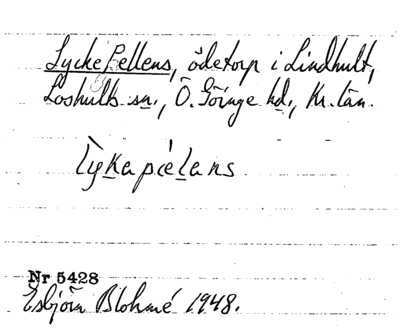 LyckePellens, ödetorp i Lindhult,
Loshults sn., Ö. Göinge hd., Kr. län.
lỳkapìelans
Nr 5428
Esbjörn Blohmé 1948.